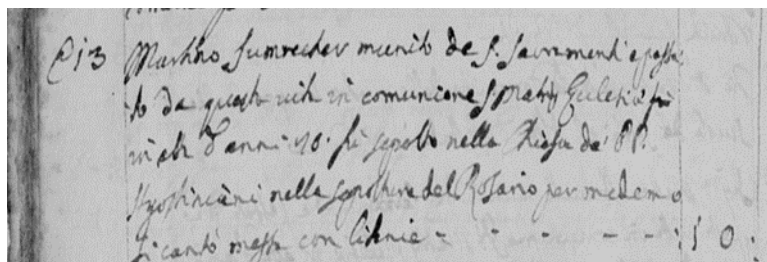 @ 13 Martino Sumrecher munito de S. Sacramenti e passa
to da questa vita in comunione S. Matris Eclesiæ fu
in età d'anni 70. fu sepolto nella Chiesa de' PP.
Agostiniani nella sepoltura del Rosario per medemo
si cantò messa con litanie - - - - - : 1 0 :